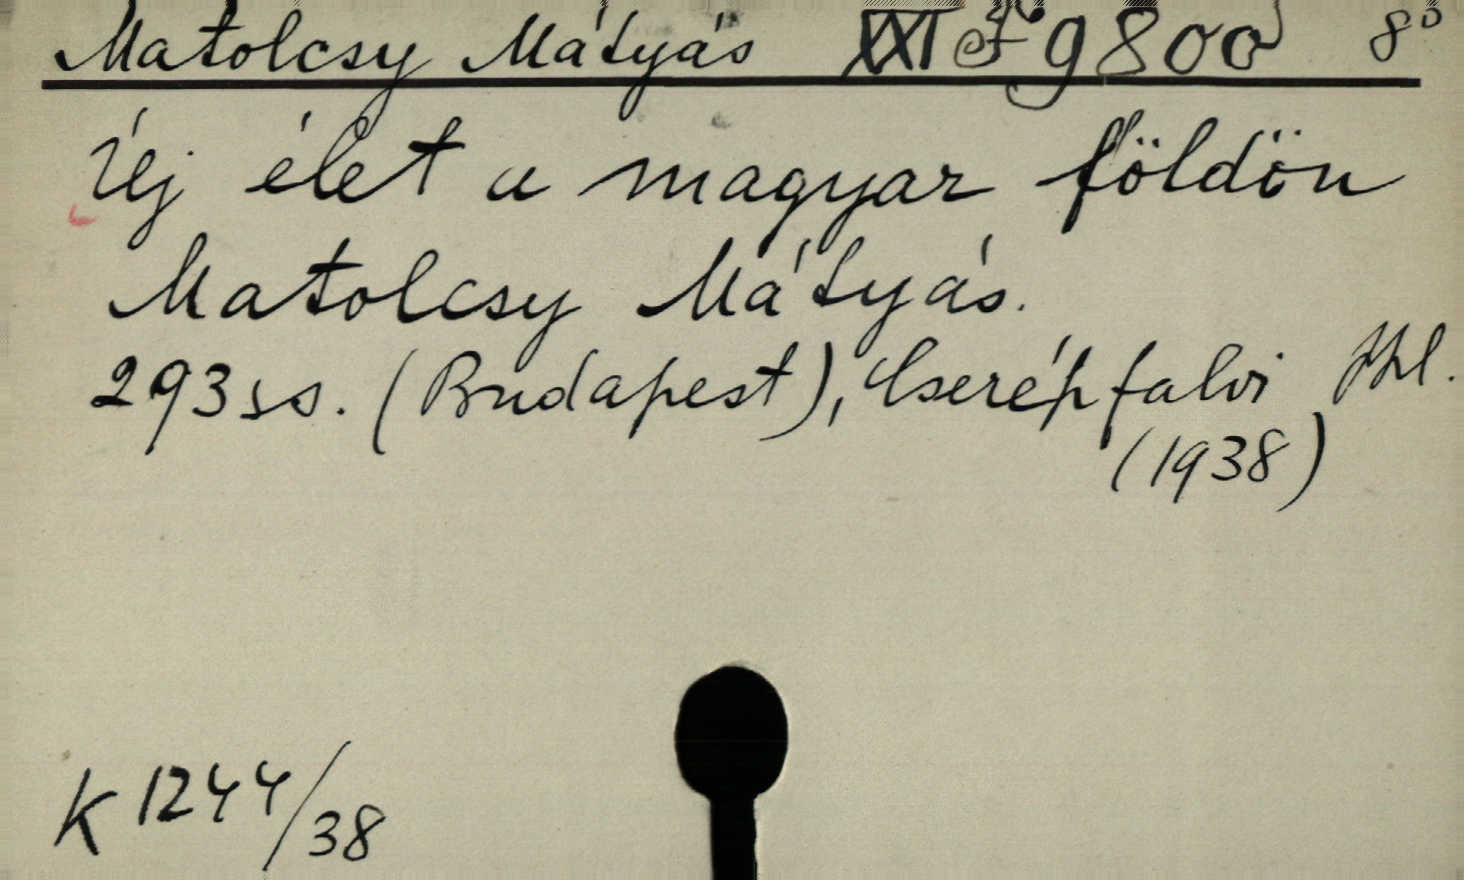 Matolcsy Mátyás XXI 9800 8°
Új élet a magyar földön
Matolcsy Mátyás.
293 ss. (Budapest), Cserépfalvi
(1938)
K 1244/38